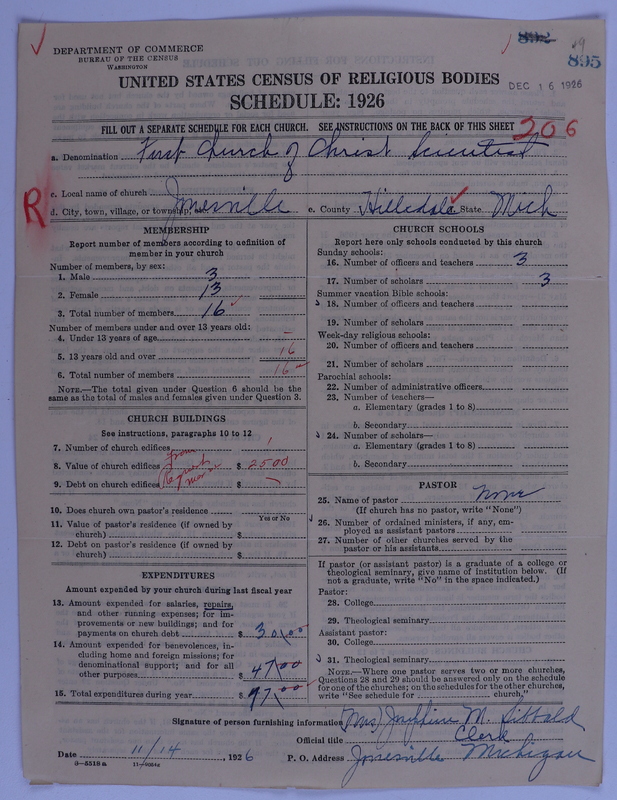 DEPARTMENT OF COMMERCE
BUREAU OF THE CENSUS
WASHINGTON
892 49
895
UNITED STATES CENSUS OF RELIGIOUS BODIES
DEC 16 1926
SCHEDULE: 1926
FILL OUT A SEPARATE SCHEDULE FOR EACH CHURCH. SEE INSTRUCTIONS ON THE BACK OF THIS SHEET
206
a. Denomination First Church of Christ Scientist
c. Local name of church
R
d. City, town, village, or township Jonesville e. County Hillsdale State Mich
MEMBERSHIP
Report number of members according to definition of member in your church
Number of members, by sex:
1. Male 3
2. Female 13
3. Total number of members 16
Number of members under and over 13 years old:
4. Under 13 years of age –
5. 13 years old and over 16
6. Total number of members 16
NOTE.—The total given under Question 6 should be the
same as the total of males and females given under Question 3.
CHURCH BUILDINGS
See instructions, paragraphs 10 to 12
7. Number of church edifices 1
from
8. Value of church edifices $ 2500
9. Debt on church edifices $ –
10. Does church own pastor's residence
Yes or No
11. Value of pastor's residence (if owned by
church) $
12. Debt on pastor's residence (if owned by
church) $
EXPENDITURES
Amount expended by your church during last fiscal year
13. Amount expended for salaries, repairs,
and other running expenses; for im-
provements or new buildings; and for
payments on church debt $
14. Amount expended for benevolences, in-
cluding home and foreign missions; for
denominational support; and for all
other purposes $ 47.00
15. Total expenditures during year $
CHURCH SCHOOLS
Report here only schools conducted by this church
Sunday schools:
16. Number of officers and teachers 3
17. Number of scholars 3
Summer vacation Bible schools:
18. Number of officers and teachers
19. Number of scholars
Week-day religious schools:
20. Number of officers and teachers
21. Number of scholars
Parochial schools:
22. Number of administrative officers
23. Number of teachers—
a. Elementary (grades 1 to 8)
b. Secondary
24. Number of scholars—
a. Elementary (grades 1 to 8)
b. Secondary
PASTOR
25. Name of pastor None
(If church has no pastor, write "None")
26. Number of ordained ministers, if any, em-
ployed as assistant pastors
27. Number of other churches served by the
pastor or his assistants
If pastor (or assistant pastor) is a graduate of a college or
theological seminary, give name of institution below. (If
not a graduate, write "No" in the space indicated.)
Pastor:
28. College
29. Theological seminary
Assistant pastor:
30. College
31. Theological seminary
NOTE.—Where one pastor serves two or more churches,
Questions 28 and 29 should be answered only on the schedule
for one of the churches; on the schedules for the other churches,
write "See schedule for church."
Signature of person furnishing information (Mrs) Josephine M. Sibbald
Official title Clerk
Date 11/14, 1926 P. O. Address Jonesville Michigan
9-5518 a 11-9054c